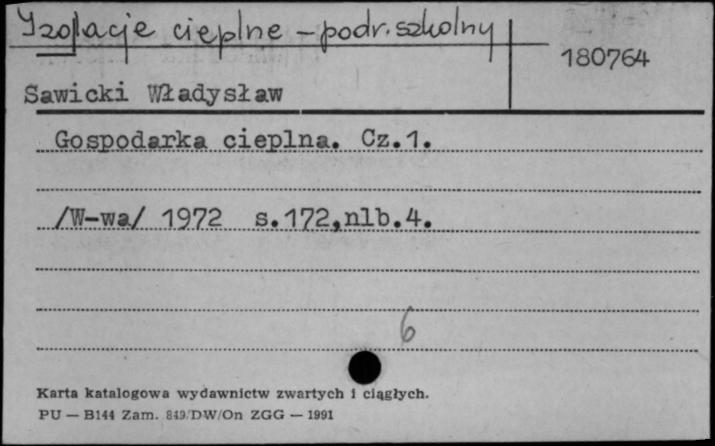 Izolacje cieplne - podr. szkolny
180764
Sawicki Władysław
Gospodarka cieplna. Cz.1.
/W-wa/ 1972 s.172,nlb.4.
6
Karta katalogowa wydawnictw zwartych i ciągłych.
PU — B144 Zam. 849/DW/On ZGG — 1991